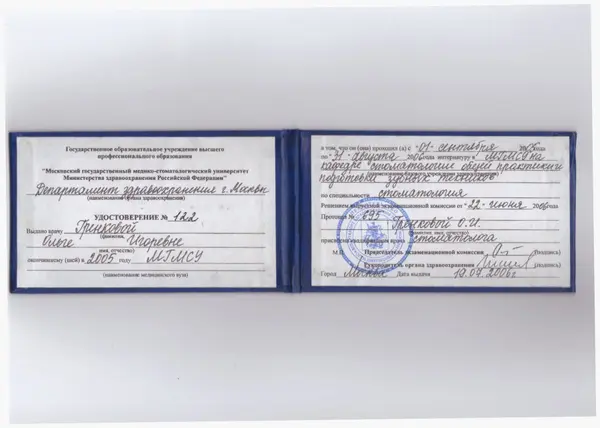 Государственное образовательное учреждение высшего
профессионального образования
"Московский государственный медико-стоматологический университет
Министерства здравоохранения Российской Федерации"
Департамент здравоохранения г. Москвы
(наименование органа здравоохранения)
УДОСТОВЕРЕНИЕ № 122
Выдано врачу Гринковой
(фамилия,
Ольге Игоревне
имя, отчество)
окончившему (шей) в 2005 году МГМСУ
(наименование медицинского вуза)
в том, что он (она) проходил (а) с 01 сентября 2005 года
по 31 августа 2006 года интернатуру в МГМСУ на
кафедре стоматологии общей практики и
подготовки зубных техников
по специальности стоматология
Решением выпускной экзаменационной комиссии от 22 июня 2006
Протокол № 695
Гринковой О.И.
(фамилия, имя, отчество)
присвоена квалификация врача стоматолога
М.П. Председатель экзаменационной комиссии (подпись)
Руководитель органа здравоохранения (подпись)
Город Москва Дата выдачи 19.07.2006г